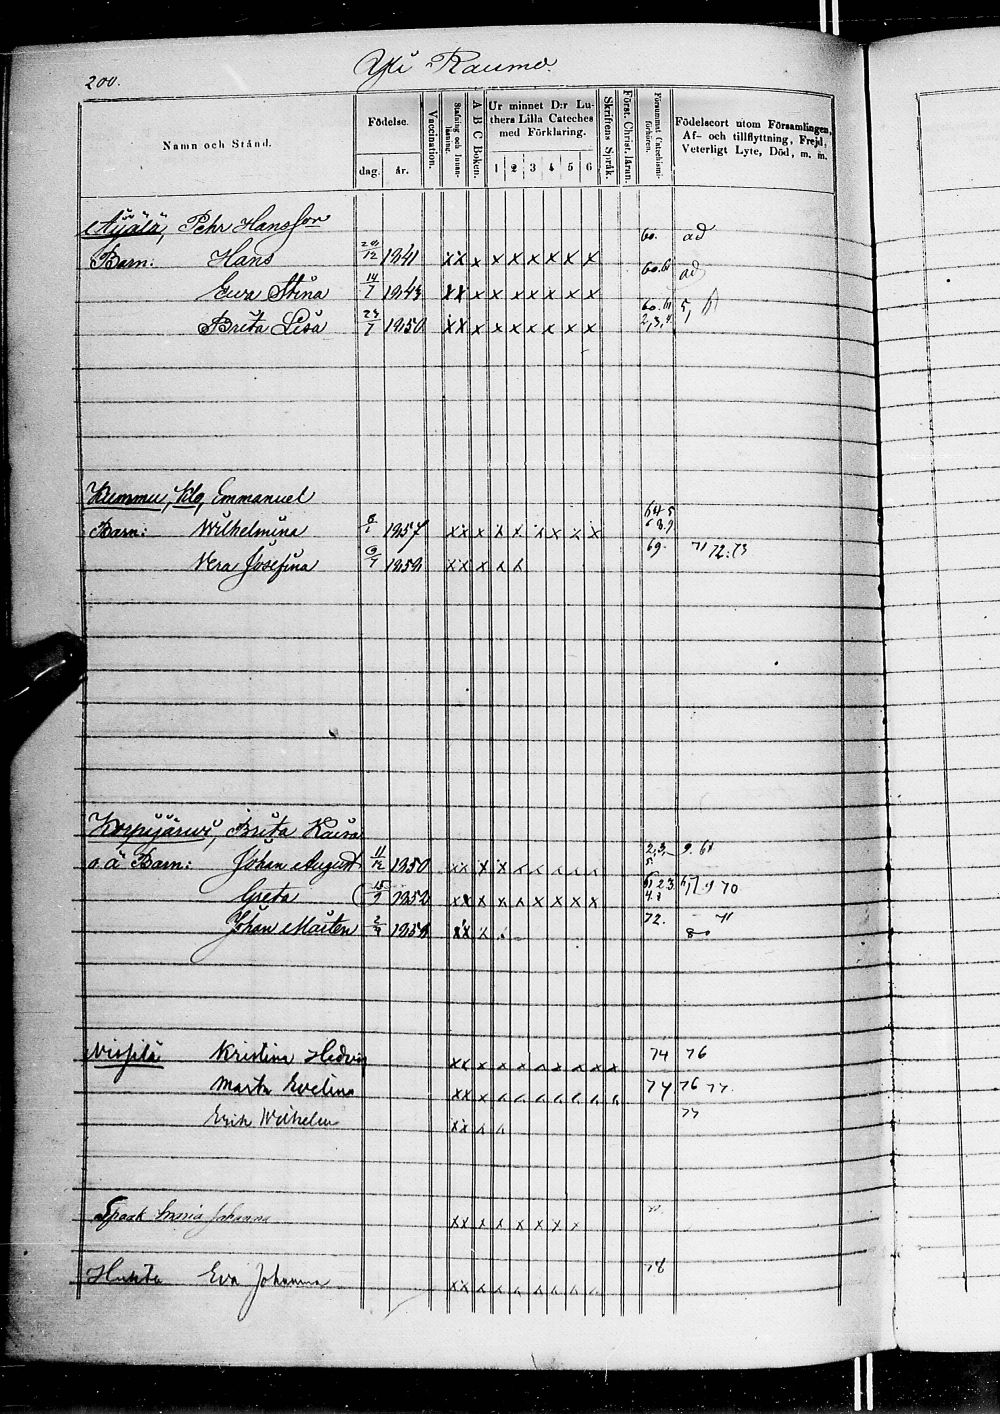 200.
Yli Raumo.
Namn och Stånd.
Födelse.
dag.
år.
Vaccination.
Stafning och Innan-läsning.
A B C Boken.
Ur minnet D:r Lu-
thers Lilla Cateches
med Förklaring.
1 2 3 4 5 6
Skriftens Språk.
Först. Christ. läran.
Försummat Catechismi-förhören.
Födelseort utom Församlingen,
Af- och tillflyttning, Frejd,
Veterligt Lyte, Död, m. m.
Äijälä, Pehr Hansson
Barn: Hans 1841 x x x x x x x x x 60. ad
Ewa Stina 14/7 1843 x x x x x x x x x 60.61 ad
Brita Lisa 23/7 1850 x x x x x x x x x 60.61 2,3,4
Kummu, Kilo, Emmanuel
Barn: Wilhelmina 1857 x x x x x x x x x
Vera Josefina 1858 x x x x x 69. 71 72.73
Korpijärwi, Brita Kaisa
o. ä Barn: Johan August 11/12 1850 x x x x x x x x x 2,3, 5 9. 68
Greta 15/9 1852 x x x x x x x x x 70
Johan Mårten 1858 x x x x 72. 71
80
Kristina Hedvig x x x x x x x x x x 74 76
Marta Evelina x x x x x x x x x x 74 76 77.
Erik Wilhelm x x x x 77
Spaak Maria Johanna x x x x x x x x
Huhta Eva Johanna x x x x x x x x x 78